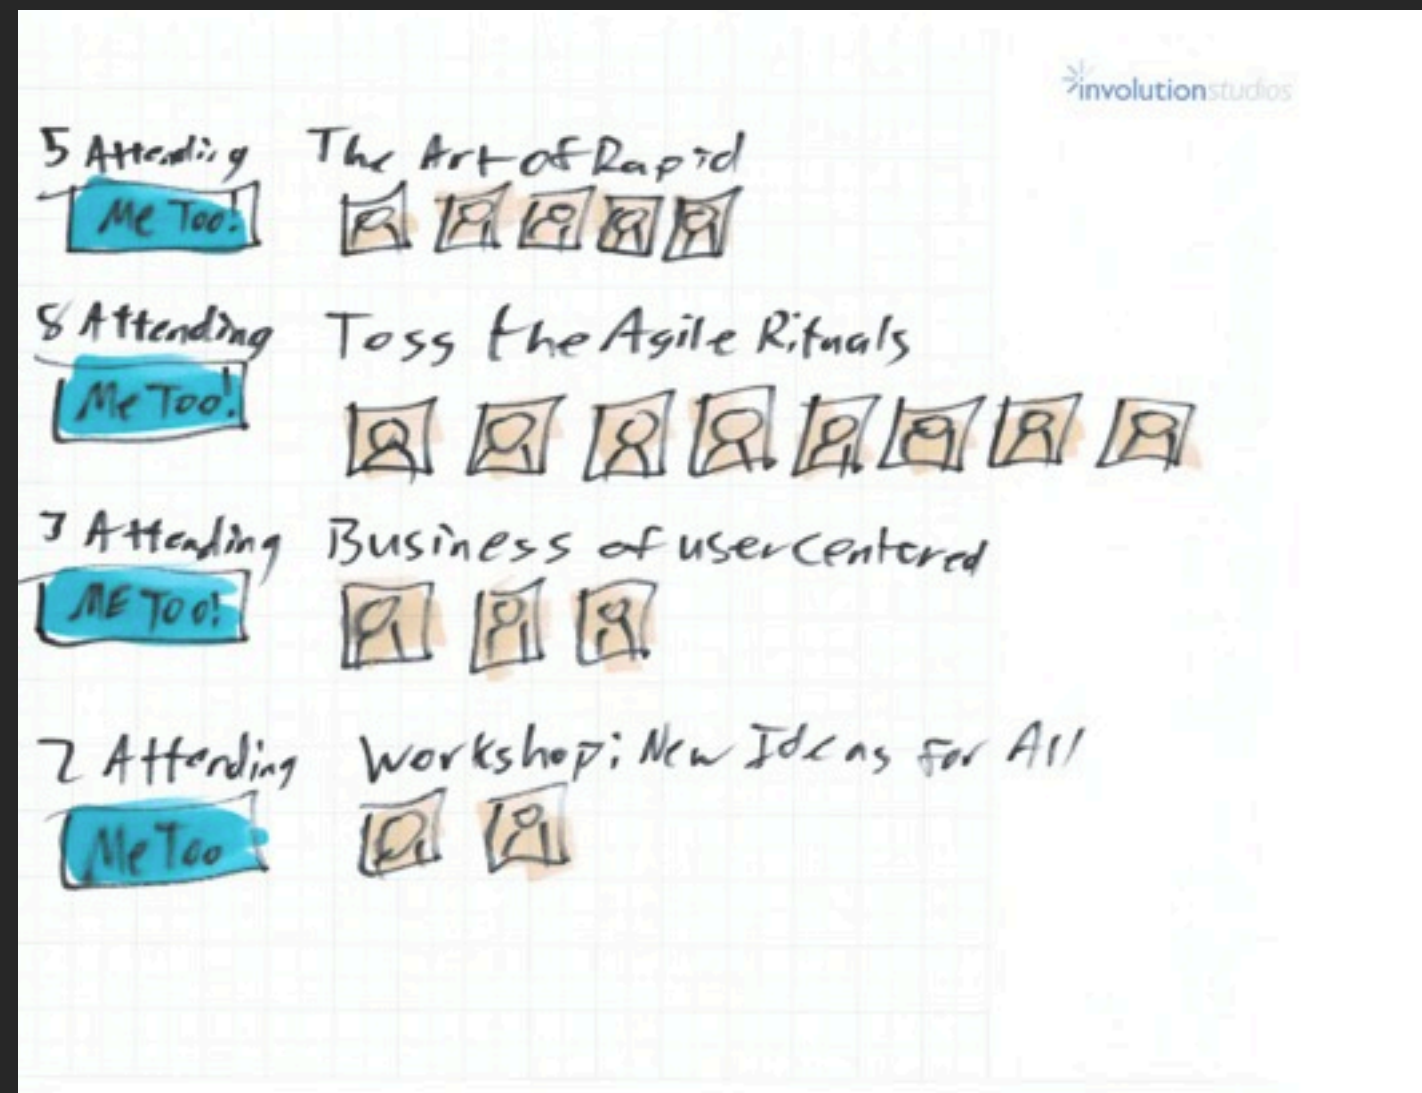 involutionstudios
5 Attending The Art of Rapid
Me Too!
8 Attending Toss the Agile Rituals
Me Too!
3 Attending Business of user centered
ME TOO!
2 Attending Workshop: New Ideas for All
Me Too